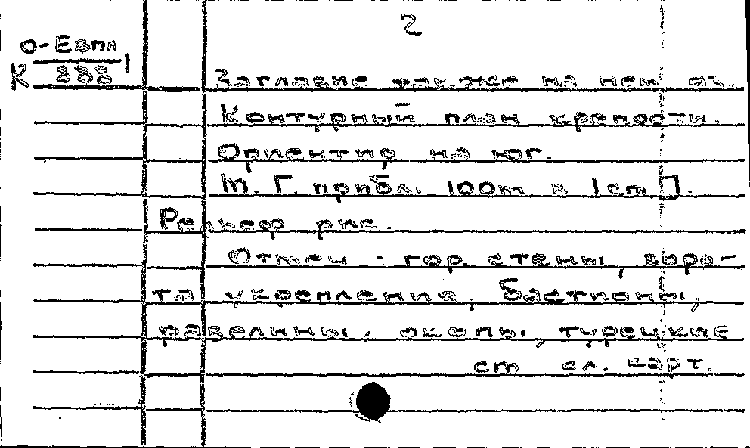 2
О-Евпл
К 888 1
Заглавие также на нем. яз.
Контурный план крепости.
Ориентир на юг.
М. Г. прибл. 100m в 1cm].
Рельеф рис.
Отмеч. гор. стены, воро-
та укрепления, бастионы,
равелины, окопы, турецкие
см сл. карт.